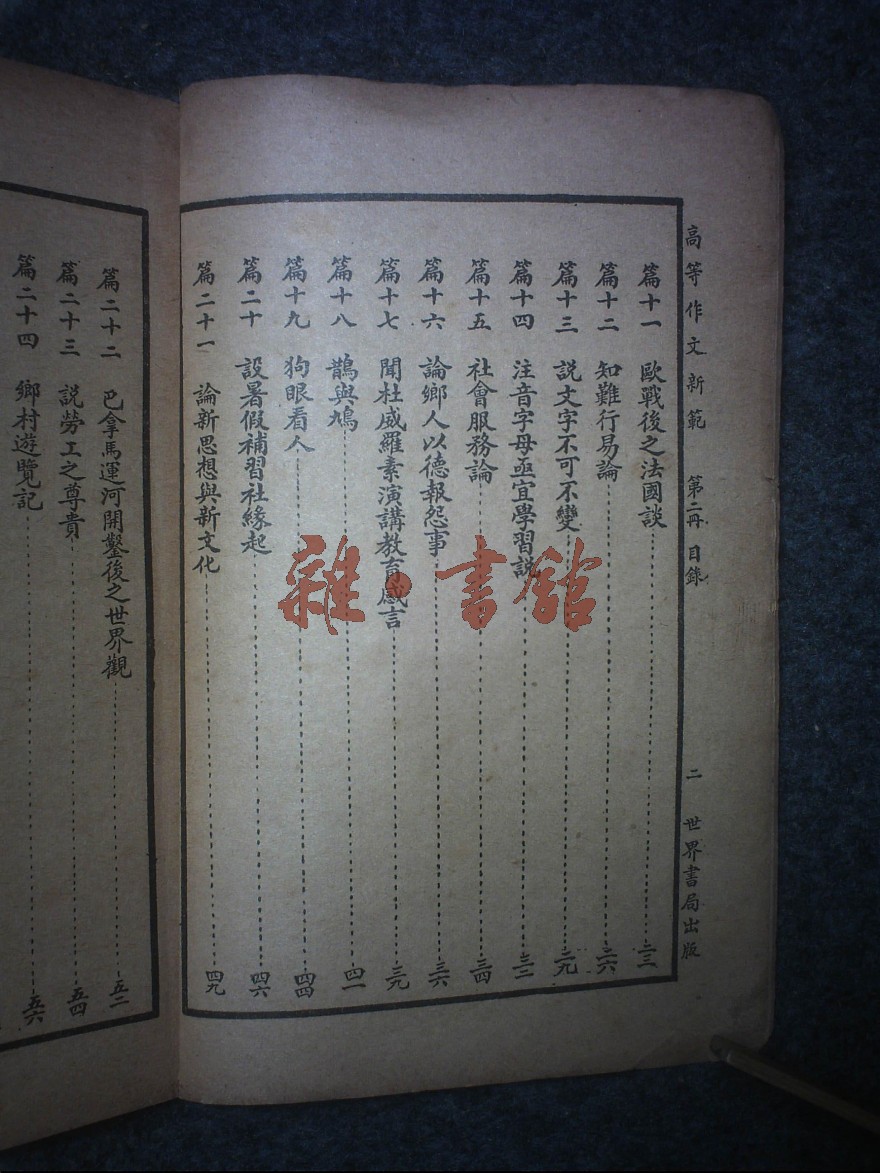 高等作文新範 第二冊 目錄 二 世界書局出版
篇十一 歐戰後之法國談 二三
篇十二 知難行易論 二六
篇十三 説文字不可不變 二九
篇十四 注音字母亟宜學習説 三二
篇十五 社會服務論 三四
篇十六 論鄉人以德報怨事 三六
篇十七 聞杜威羅素演講教育感言 三九
篇十八 鵲與鳩 四一
篇十九 狗眼看人 四四
篇二十 設暑假補習社緣起 四六
篇二十一 論新思想與新文化 四九
篇二十二 巴拿馬運河開鑿後之世界觀 五二
篇二十三 説勞工之尊貴 五四
篇二十四 鄉村遊覽記 五六
雜·書館